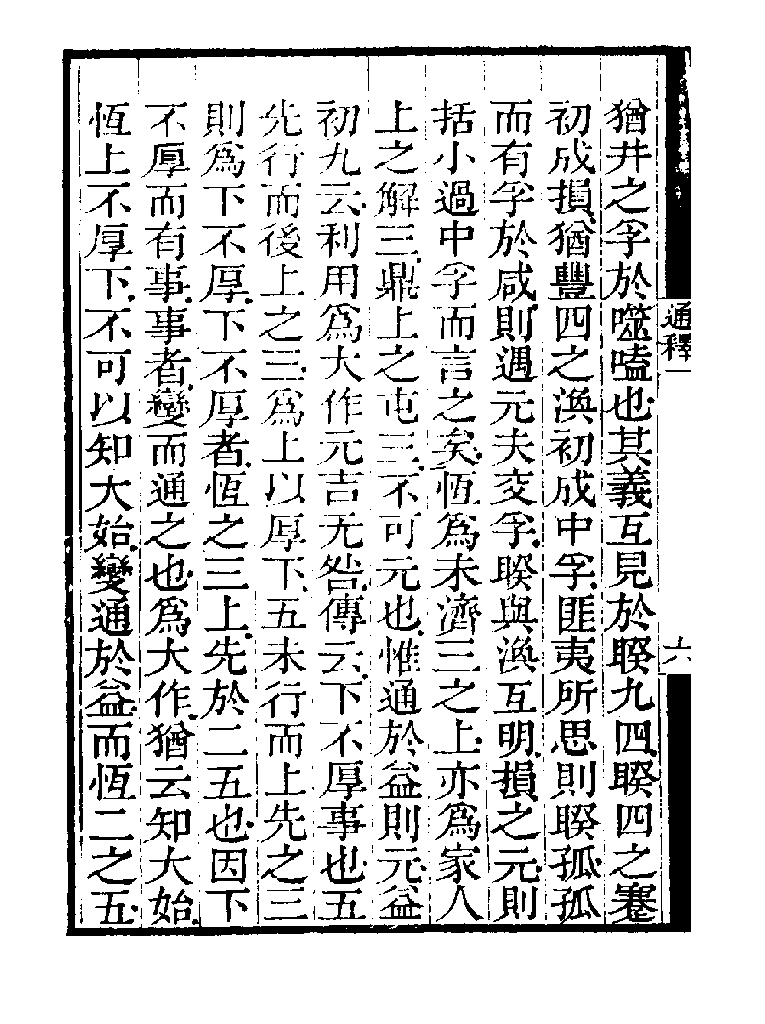 通釋一
六
猶井之孚於噬嗑也其義互見於睽九四睽四之蹇
初成損猶豐四之渙初成中孚匪夷所思則睽孤孤
而有孚於咸則遇元夫交孚睽與渙互明損之元則
括小過中孚而言之矣恆爲未濟三之上亦爲家人
上之解三鼎上之屯三不可元也惟通於益則元益
初九云利用爲大作元吉无咎傳云下不厚事也五
先行而後上之三爲上以厚下五未行而上先之三
則爲下不厚下不厚者恆之三上先於二五也因下
不厚而有事事者變而通之也爲大作猶云知大始
恆上不厚下不可以知大始變通於益而恆二之五